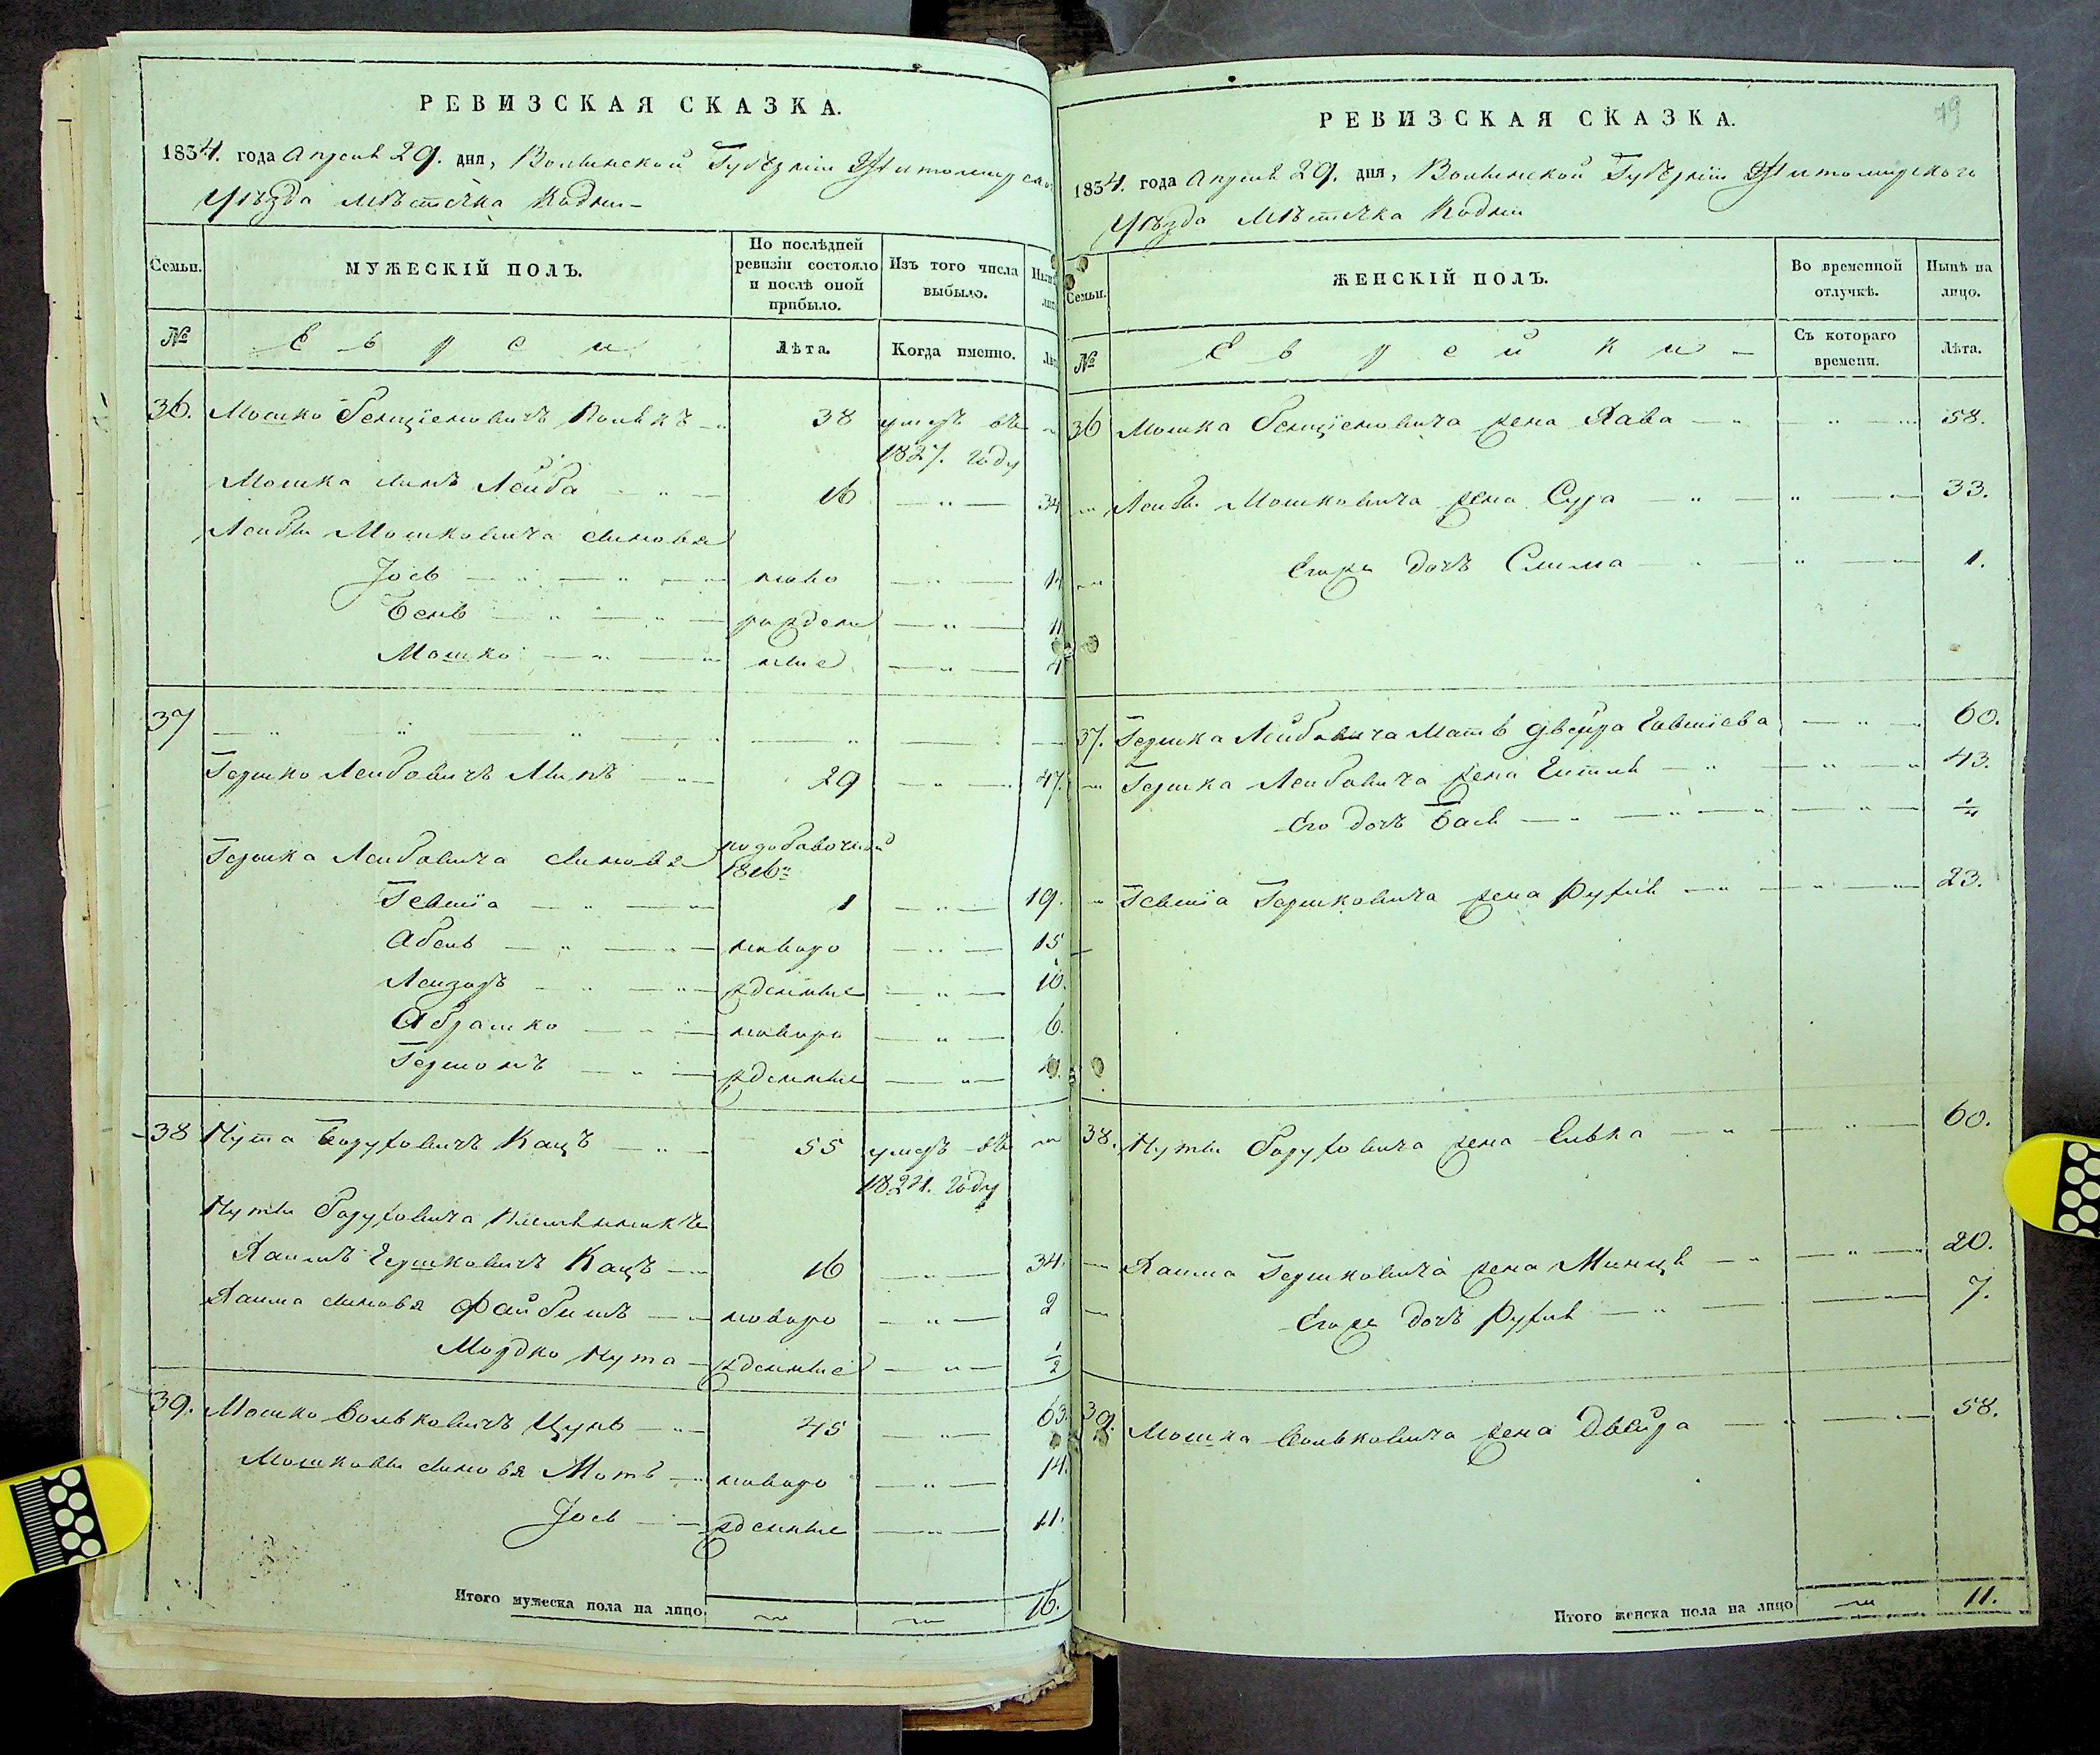 РЕВИЗСКАЯ СКАЗКА.
1834. года Апреля 29. дня, Волынской Губернiи Житомирско
Уѣзда Мѣстечка Кодни
Семьи.
МУЖЕСКIЙ ПОЛЪ.
По послѣдней ревизiи состояло и послѣ оной прибыло.
Изъ того числа выбыло.
№
Евреи
Лѣта.
Когда именно.
36. Мошко Бенцiеновичъ 38 умеръ въ
1827. году
Мошка сынъ Лейба 16 34
Лейбы Мошковича сыновья
Iось ново
Бень рожден 11
Мошко ные 4
37
Гершко Лейбовичъ 29 47.
Гершка Лейбовича сыновья по добавочной
1816
Гевшiа 1 19.
Абель новоро 15
Лейзоръ жденные 10.
Абрамко новоро 6.
Гершонъ жденные
38 Нута Борухович Кацъ 55 умеръ въ
1824. году
Нуты Боруховича племянникъ
Хаимъ Гершковичъ Кацъ 16 34.
Хаима сыновья Файбишъ новоро 2
Мордко Нута жденные 1/2
39. Мошко Вольковичъ Цунь 45 63.
Мошковы сыновья Моть новоро 14.
Iось жденные 11.
Итого мужеска пола на лицо 16.
79
РЕВИЗСКАЯ СКАЗКА.
1834. года Апреля 29. дня, Волынской Губернiи Житомирского
Уѣзда Мѣстечка Кодни
Семьи.
ЖЕНСКIЙ ПОЛЪ.
Во временной отлучкѣ.
Нынѣ на лицо.
№
Еврейки
Съ котораго времени.
Лѣта.
36 Мошка Бенцiеновича жена Хава 58.
Лейбы Мошковича жена Сура 33.
Егоже дочь Слима 1.
37. Гершка Лейбовича Мать Двейра Гевшiева 60.
Гершка Лейбовича жена Гитля 43.
Его дочь Бася 1/4
Гевшiа Гершковича жена Рухля 23.
38. Нуты Боруховича жена Сивка 60.
Хаима Гершковича жена Минця 20.
Егоже дочь Рухля 7.
39. Мошка Вольковича жена Двейра 58.
Итого женска пола на лицо 11.